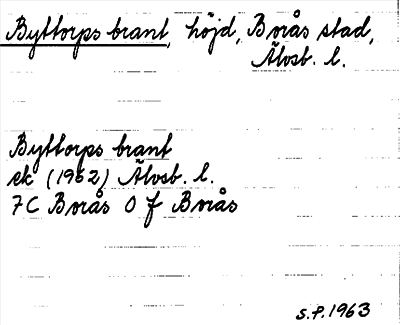 Byttorps brant, höjd, Borås stad,
Älvsb. l.
Byttorps brant
ek (1962) Älvsb. l.
7C Borås O f Borås
S.P. 1963